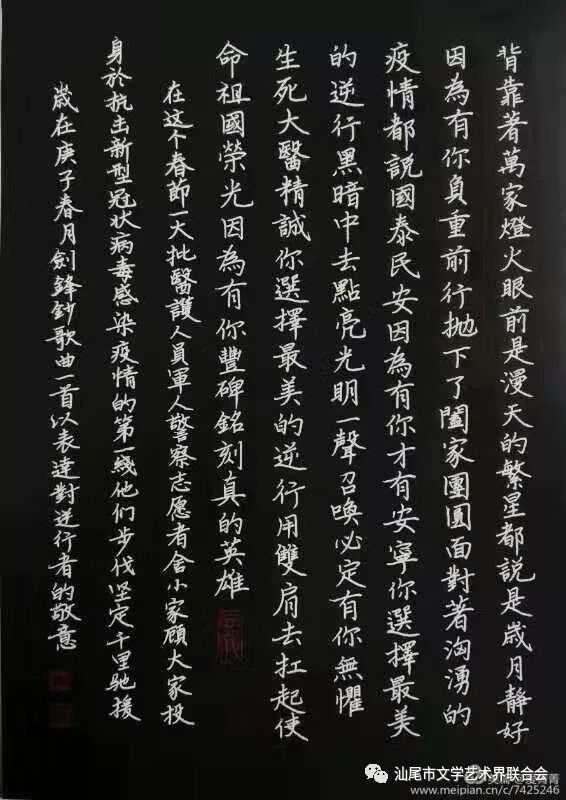 背靠著萬家燈火眼前是漫天的繁星都說是歲月靜好
因為有你負重前行抛下了闔家團圓面對著洶湧的
疫情都說國泰民安因為有你才有安寧你選擇最美
的逆行黑暗中去點亮光明一聲召喚必定有你無懼
生死大醫精誠你選擇最美的逆行用雙肩去扛起使
命祖國榮光因為有你豐碑銘刻真的英雄
在这个春節一大批醫護人員軍人警察志愿者舍小家顧大家投
身於抗击新型冠状病毒感染疫情的第一綫他们步伐坚定千里驰援
歲在庚子春月劍鋒鈔歌曲一首以表达對逆行者的敬意
汕尾市文学艺术界联合会
meipian.cn/c/7425246